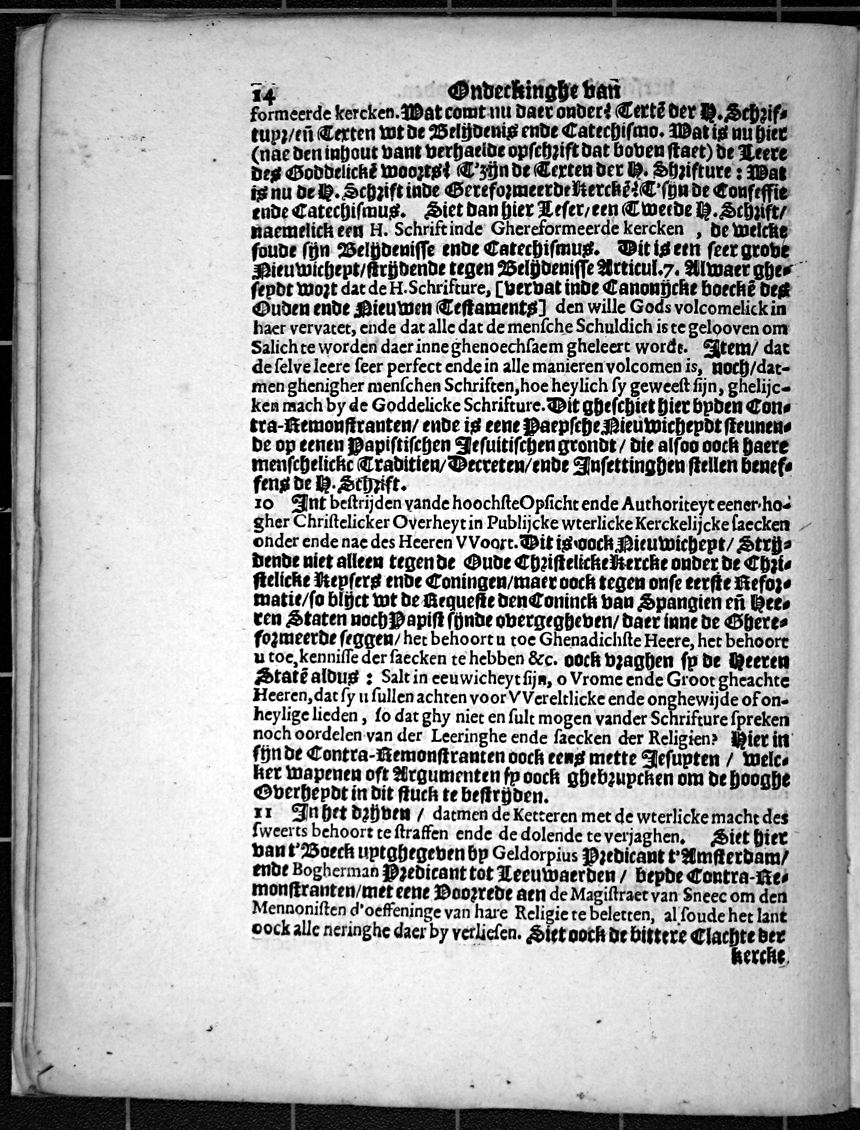 14 Ondeckinghe van
formeerde kercken. Wat comt nu daer onder? Textẽ der H. Schrif-
tupꝛ/ eñ Texten wt de Belijdenis ende Catechismo. Wat is nu hier
(nae den inhout vant verhaelde opschꝛift dat boven staet) de Leere
des Goddelickẽ woorts? T'zijn de Texten der H. Shꝛifture : Wat
is nu de H. Schꝛift inde Gereformeerde Kerckẽ? T'sijn de Confessie
ende Catechismus. Siet dan hier Leser/ een Tweede H. Schꝛift/
naemelick een H. Schrift inde Ghereformeerde kercken , de welcke
soude sijn Belijdenisse ende Catechismus. Dit is een seer grove
Nieuwicheyt/ strijdende tegen Belijdenisse Articul. 7. Alwaer ghe-
seydt woꝛt dat de H. Schrifture, [vervat inde Canonijcke boeckẽ des
Ouden ende Nieuwen Testaments] den wille Gods volcomelick in
haer vervatet, ende dat alle dat de mensche Schuldich is te gelooven om
Salich te worden daer inne ghenoechsaem gheleert wordt. Item/ dat
de selve leere seer perfect ende in alle manieren volcomen is, noch/ dat-
men ghenigher menschen Schriften, hoe heylich sy geweest sijn, ghelijc-
ken mach by de Goddelicke Schrifture. Dit gheschiet hier byden Con-
tra-Remonstranten/ ende is eene Paepsche Nieuwicheydt steunen-
de op eenen Papistischen Jesuitischen grondt / die alsoo oock haere
menschelickc Traditien/ Decreten/ ende Insettinghen stellen benef-
fens de H. Schꝛift.
10 Int bestrijden vande hoochste Opsicht ende Authoriteyt eener ho-
gher Christelicker Overheyt in Publijcke wterlicke Kerckelijcke saecken
onder ende nae des Heeren VVoort. Dit is oock Nieuwicheyt/ Strij-
dende niet alleen tegen de Oude Chꝛistelicke Kercke onder de Chꝛi-
stelicke Keysers ende Coningen/ maer oock tegen onse eerste Refor-
matie/ so blijct wt de Requeste den Coninck van Spangien eñ Hee-
ren Staten noch Papist sijnde overgegheven/ daer inne de Ghere-
formeerde seggen/ het behoort u toe Ghenadichste Heere, het behoort
u toe, kennisse der saecken te hebben &c. oock vꝛaghen sy de Heeren
Statẽ aldus : Salt in eeuwicheyt sijn, o Vrome ende Groot gheachte
Heeren, dat sy u sullen achten voor VVereltlicke ende onghewijde of on-
heylige lieden , so dat ghy niet en sult mogen vander Schrifture spreken
noch oordelen van der Leeringhe ende saecken der Religien? Hier in
sijn de Contra-Remonstranten oock eens mette Jesuyten / welc-
ker wapenen oft Argumenten sy oock ghebꝛuycken om de hooghe
Overheydt in dit stuck te bestrijden.
11 In het dꝛijven / datmen de Ketteren met de wterlicke macht des
sweerts behoort te straffen ende de dolende te verjaghen. Siet hier
van t'Boeck uytghegeven by Geldorpius Pꝛedicant t'Amsterdam/
ende Bogherman Pꝛedicant tot Leeuwaerden / beyde Contra-Re-
monstranten/ met eene Vooꝛrede aen de Magistraet van Sneec om den
Mennonisten d'oeffeninge van hare Religie te beletten, al soude het lant
oock alle neringhe daer by verliesen. Siet oock de bittere Clachte der
kercke